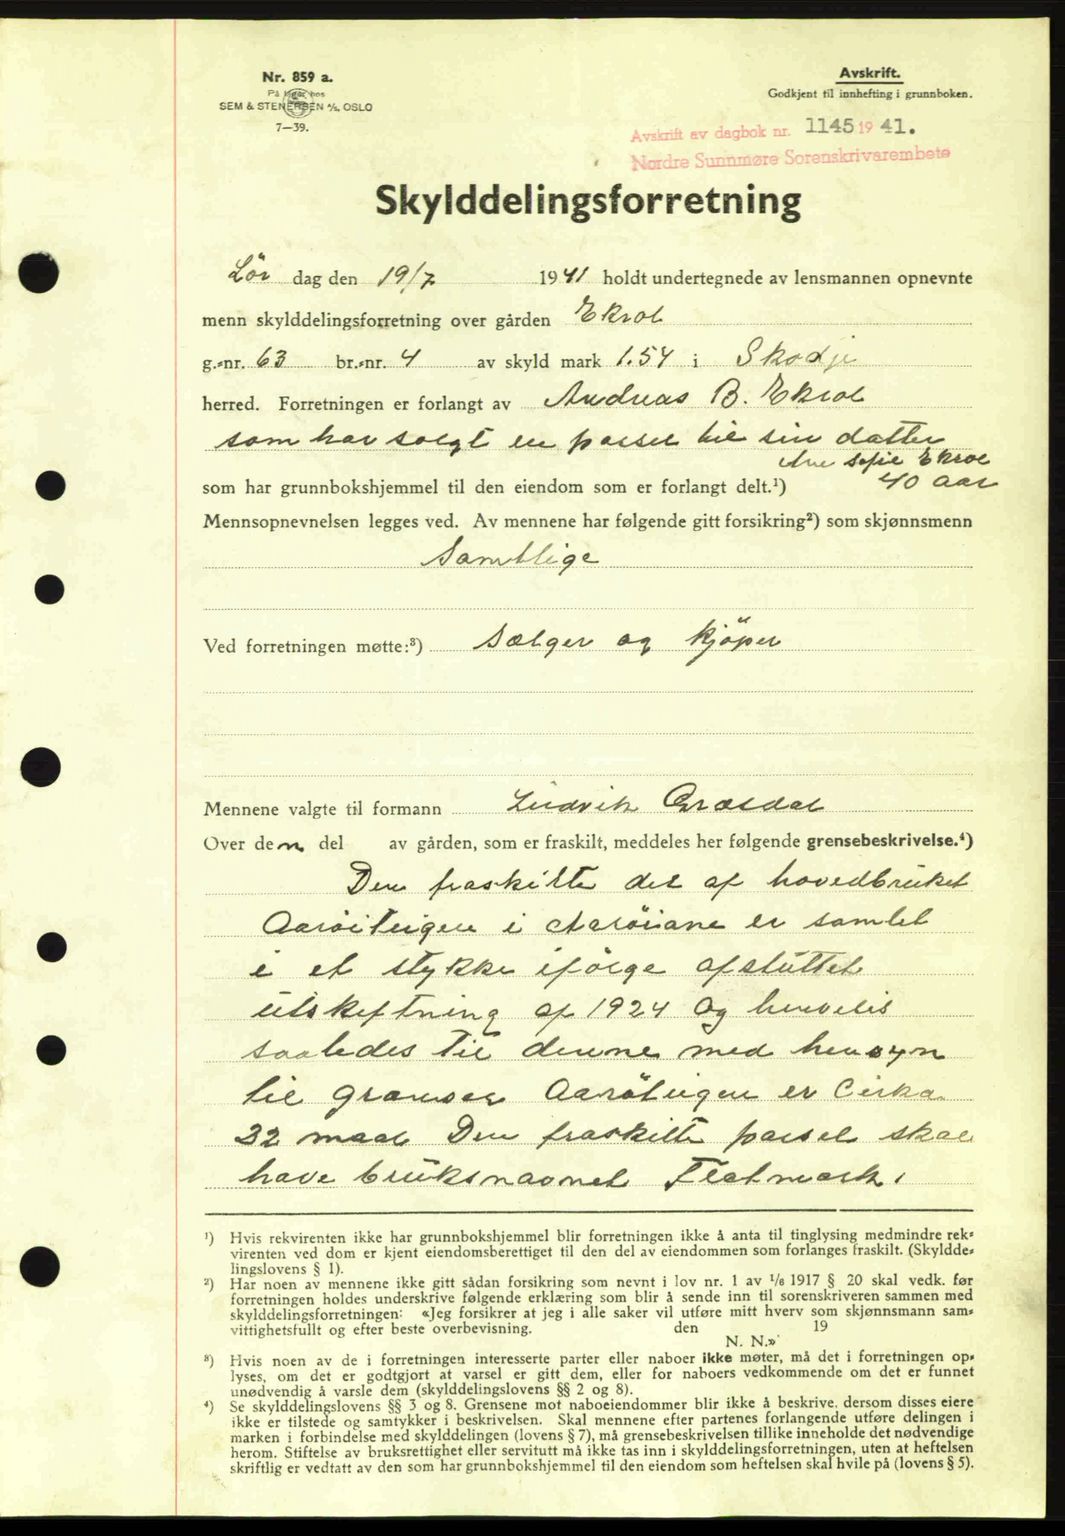 Nr. 859 a.
På lager hos
SEM & STENERSEN A/S, OSLO
7—39.
Avskrift.
Godkjent til innhefting i grunnboken.
Avskrift av dagbok nr. 1145 1941.
Nordre Sunnmøre Sorenskrivarembete
Skylddelingsforretning
Lör dag den 19/7 1941 holdt undertegnede av lensmannen opnevnte
menn skylddelingsforretning over gården Ekrol
g.-nr. 63 br.-nr. 4 av skyld mark 1.54 i Skodje
herred. Forretningen er forlangt av Andreas B. Ekrol
som har solgt en parsel til sin datter
Ane Sofie Ekrol
som har grunnbokshjemmel til den eiendom som er forlangt delt.¹) 40 aar
Mennsopnevnelsen legges ved. Av mennene har følgende gitt forsikring²) som skjønnsmenn
Samtlige
Ved forretningen møtte:³) Sælger og kjöper
Mennene valgte til formann Ludvik Græsdal
Over den del av gården, som er fraskilt, meddeles her følgende grensebeskrivelse.⁴)
Den fraskilte del af hovedbruket
Aaröiteigen i Aaröiane er samlet
i et stykke ifölge afsluttet
utskiftning af 1924 og henvises
saaledes til denne med hensyn
til grænser Aaröteigen er Cirka
32 maal Den fraskilte parsel skal
have bruksnavnet Flatmark.
¹) Hvis rekvirenten ikke har grunnbokshjemmel blir forretningen ikke å anta til tinglysing medmindre rek-
virenten ved dom er kjent eiendomsberettiget til den del av eiendommen som forlanges fraskilt. (Skyldde-
lingslovens § 1).
²) Har noen av mennene ikke gitt sådan forsikring som nevnt i lov nr. 1 av 1/6 1917 § 20 skal vedk. før
forretningen holdes underskrive følgende erklæring som blir å sende inn til sorenskriveren sammen med
skylddelingsforretningen: «Jeg forsikrer at jeg i alle saker vil utføre mitt hverv som skjønnsmann sam-
vittighetsfullt og efter beste overbevisning. den 19
N. N.»
³) Hvis noen av de i forretningen interesserte parter eller naboer ikke møter, må det i forretningen op-
lyses, om det er godtgjort at varsel er gitt dem, eller for naboers vedkommende om det er funnet
unødvendig å varsle dem (skylddelingslovens §§ 2 og 8).
⁴) Se skylddelingslovens §§ 3 og 8. Grensene mot naboeiendommer blir ikke å beskrive, dersom disses eiere
ikke er tilstede og samtykker i beskrivelsen. Skal mennene efter partenes forlangende utføre delingen i
marken i forbindelse med skylddelingen (lovens § 7), må grensebeskrivelsen tillike inneholde det nødvendige
herom. Stiftelse av bruksrettighet eller servitutt må ikke tas inn i skylddelingsforretningen, uten at heftelsen
skriftlig er vedtatt av den som har grunnbokshjemmel til den eiendom som heftelsen skal hvile på (lovens § 5).